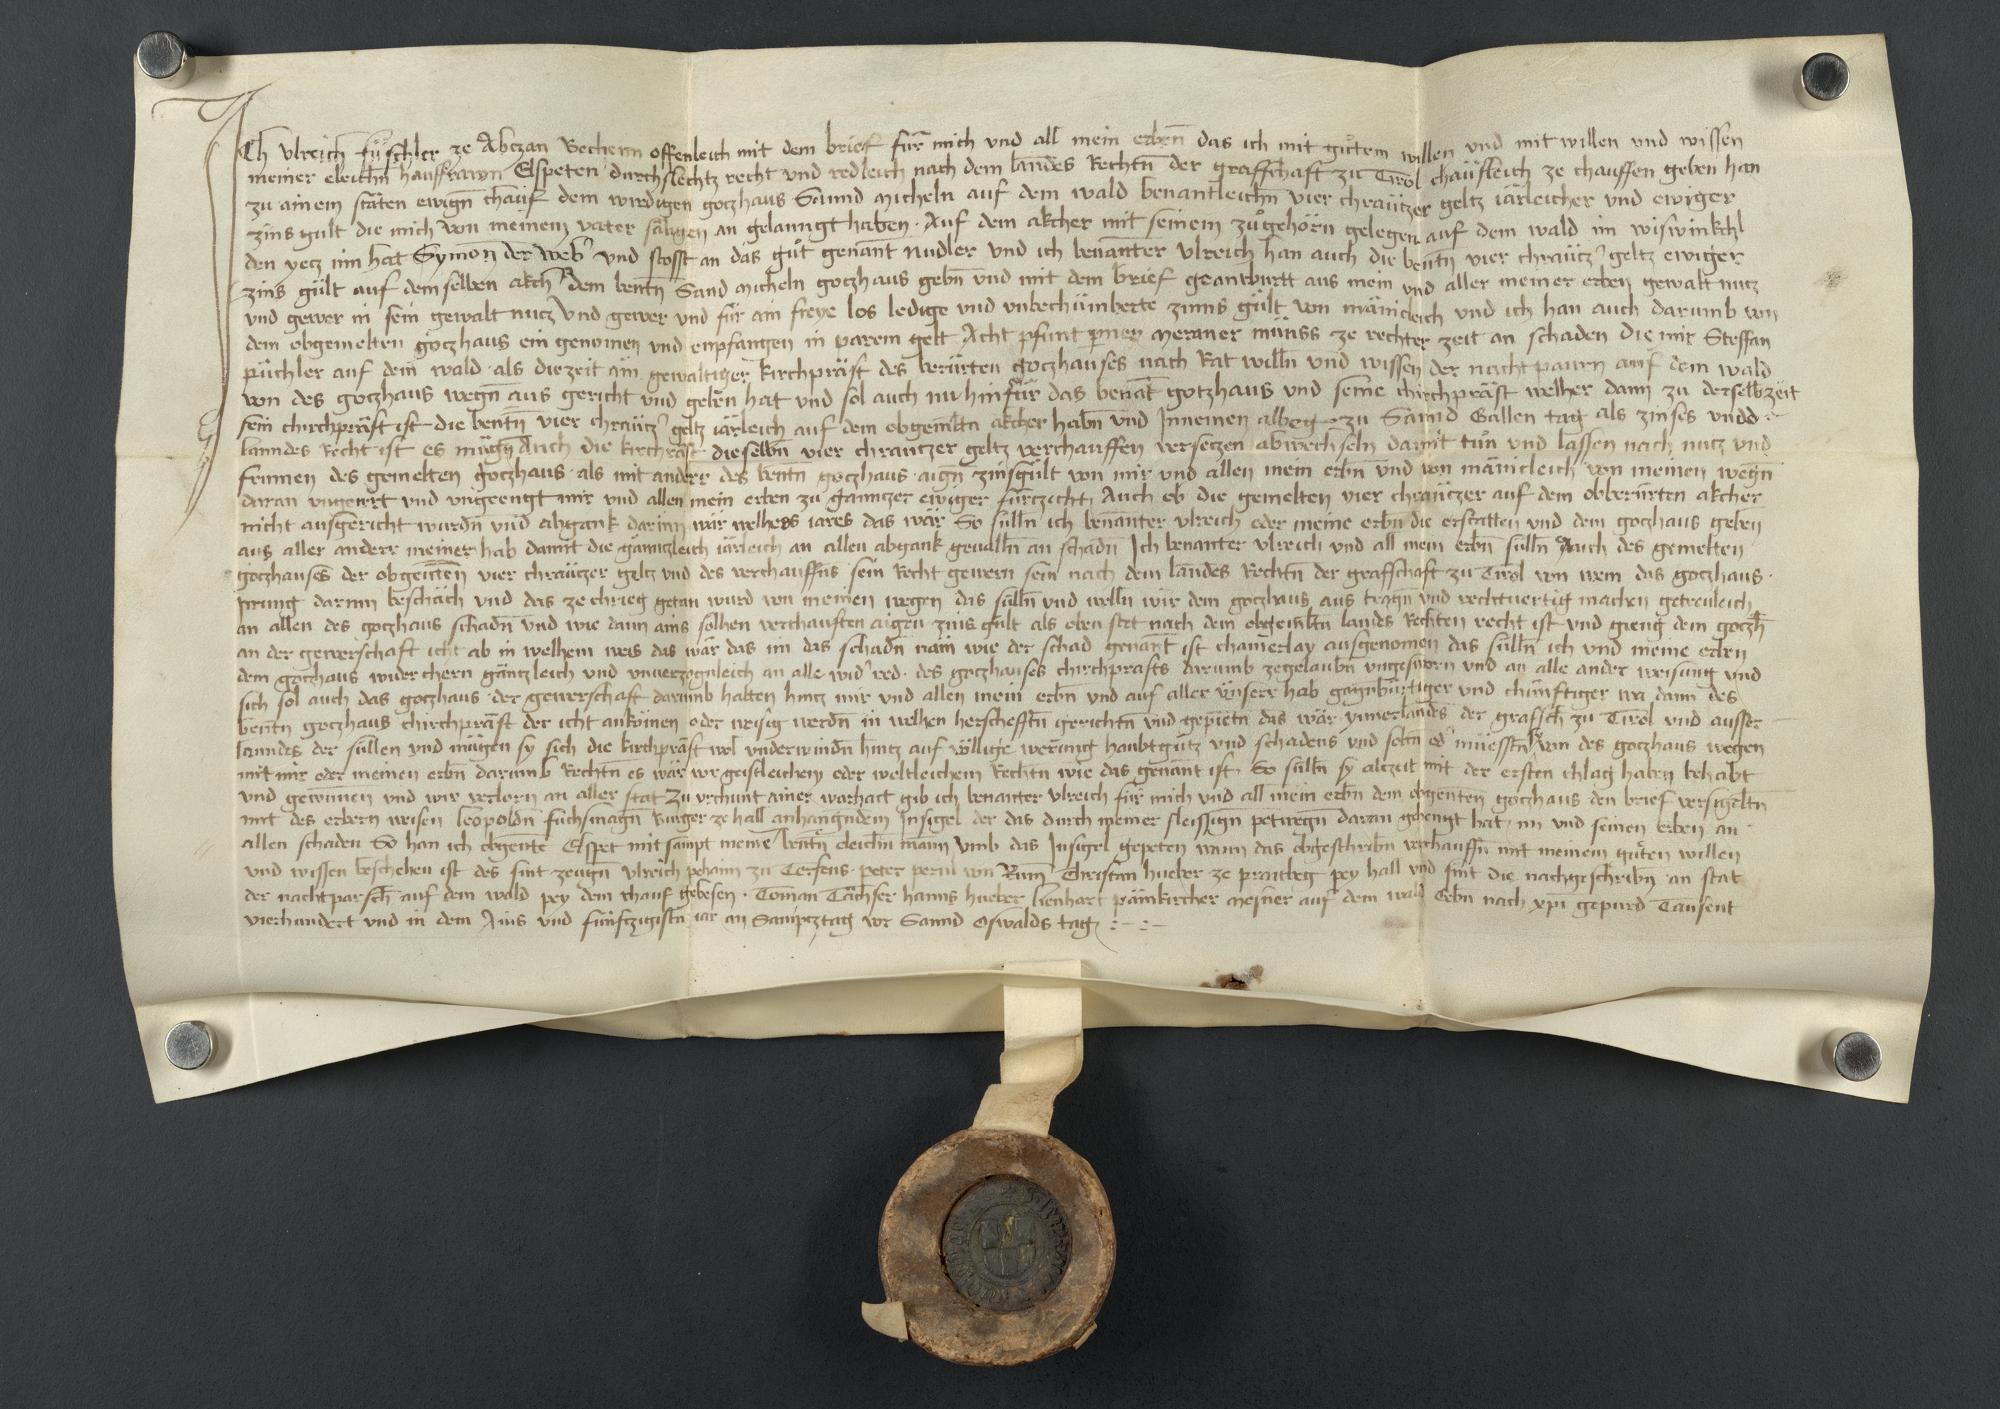 Ich Ulreich ze Abczan Vechenn offenleich mit dem brief für mich und all mein erben das ich mit gůtem willen und mit willen und wissen
meiner eleichn̄ hausfrawn Elspeten durchslechtz recht und redleich nach dem landes Rechtn̄ der graffschaft zu Tirol chäufleich ze chauffen geben han
zu ainem stäten ewign̄ chauf dem wirdigen goczhaus Sannd Micheln auf dem wald benantleichn̄ vier chräutzer geltz iärleicher und ewiger
zins gult die mich von meinem vater säligen an gelanngt haben · Auf dem akcher mit seinem zůgehörn gelegen auf dem wald im wiswinkchl
den yecz inn hat Symon der Web' und stosst an das gůt genant Nudler und ich benanter Ulreich han auch die bentn̄ vier chräutz' geltz ewiger
zins gült auf demselben akch' dem bentn̄ Sand Micheln goczhaus gebn̄ und mit dem brief geantburtt aus mein und aller meiner erben gewalt nucz
und gewer in sein gewalt nucz und gewer und für ain freye los ledige und unbechümberte zinns gült von mänicleich und ich han auch darumb von
dem obgemelten goczhaus ein genomen und enpfangen in parem gelt Acht pfunt Meraner münss ze rechter zeit an schaden die mir Steffan
püchler auf dem wald · als die zeit ain gewaltiger kirchpräst des berürten goczhauses nach Rat willn̄ und wissen der nachtpaurn auf dem wald
von des goczhaus wegn̄ aus gericht und geben hat und sol auch nu hinfür das benant gotzhaus und seine chirchpräst welher dann zu derselbzeit
sein chirchpräst ist die bentn̄ vier chräutz' geltz iärleich auf dem obgemltn akcher habn̄ und Innemen albeg zu Sannd Gallen tag als zinses und
lanndes Recht ist es mügn̄ Auch die kirchräst dieselbn̄ vier chrautzer geltz verchauffen verseczen abwechseln damit tůn und lassen nach nucz und
frümen des gemelten goczhaus · als mit anderr des bentn̄ goczhaus · aign̄ zinsgült von mir und allen mein erbn̄ und von mänicleich von meinen wegn̄
daran ungeirrt und ungeengt mir und allen mein erben zu gänntzer ewiger fürtzicht · Auch ob die gemelten vier chräutzer auf dem obberürten akcher
nicht ausgericht wurdn̄ und abgank darinn wär welhes iares das wär So sulln̄ ich benanter Ulreich oder meine erbn̄ die erstatten und dem goczhaus geben
aus aller anderr meiner hab damit die gänntzleich iärleich an allen abgank gevalln̄ an schadn̄ Ich benanter Ulreich und all mein erbn̄ sulln̄ Auch des gemelten
goczhauses der obgentten vier chräutzer geltz und des verchauffns sein Recht gewern sein nach dem landes Rechtn̄ der graffschaft zu Tirol von wem das goczhaus ·
darinn beschäch und das ze chrieg getan wurd von meinen wegen das sulln̄ und welln̄ wir dem goczhaus aus tragn̄ und rechtvertig machen getreuleich
an allen des goczhaus schadn̄ und wie dann ains solhen verchauften aigen zins gült als oben stet nach dem obgemltn̄ landes Rechten recht ist und gieng dem goczh
an der gewerschaft icht ab in welhem weis das wär das im das schadn̄ näm wie der schad genant ist chainerlay ausgenomen das sulln̄ ich und meine erbn
dem goczhaus widerchern gäntzleich und unverzogenleich an alle wid' red · des goczhauses chirchprasts darumb zegelaubn̄ ungesworn und an alle ander weisung und
sich sol auch das goczhaus · der gewerschaft darumb halten hintz mir und allen mein erbn̄ und auf aller unserr hab gagnbürtiger und chünftiger wa dann des
bentn̄ goczhaus chirchpräst der icht ankömen oder weisig werdn̄ in welhen herschefftn̄ gerichtn̄ und gepietn̄ das wär ynnerlandes der grafsch zu Tirol und ausser
lanndes der sullen und mügen sy sich die kirchpräst wol underwindn̄ hintz auf völlige werung haubtgůtz und schadens und sobn̄ ed' müesstn̄ von des goczhaus wegen
mit mir oder meinen erbn̄ darumb Rechtn̄ es wär vor geistleichem oder weltleichem Rechtn wie das genant ist So sulln̄ sy alczeit mit der ersten chlag haben behabt
und gewunnen und wir verlorn an aller stat Zu urchunt ainer warhait gib ich benanter Ulreich für mich und all mein erbn̄ dem obgenten goczhaus den brief versigeltn̄
mit des erbern weisen Leopoldn̄ füchsmagn̄ Burger ze hall anhangundem Insigel der das durch meiner fleissign̄ petwegn̄ daran gehengt hat im und seinen erben an
allen schaden So han ich obgente Elspet mitsampt meinē bentn̄ eleichn̄ mann umb das Insigel gepeten wann das obgeschribn̄ verchauffn̄ mit meinem gůten willen
und wissen beschehen ist des sint zeugn̄ Ulreich pehaim zu Terfens · peter von Rum Christan Hueber ze prantbeg pey hall und sint die nachgeschribn̄ an stat
der nachtparsch auf dem wald pey dem chauf gebesen · Toman Tächser hanns hueber lienhart päinkircher Mesner auf dem wald Gebn̄ nach xpi gepurd Tausent
vierhundert und in dem Ains und funfczigistn̄ iar an Sampcztag vor Sannd Oswalds tag